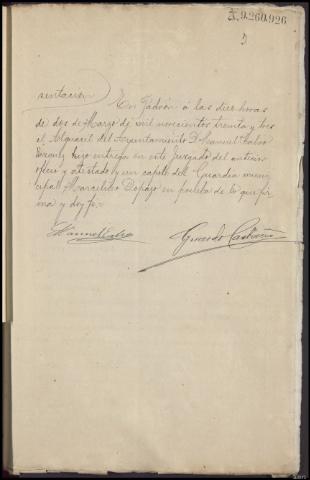 A.9.260.926
3
sentación
En Padrón á las diez horas
de dos de Marzo de mil novecientos treinta y tres
el Alguacil del Ayuntamiento D. Manuel Calvo
hizo entrega en este Juzgado del anterior
oficio y atestado y un capote del Guardia muni
cipal Marcelino Dopazo en prueba de lo que fir
ma y doy fe.
Manuel Calvo
Gerardo